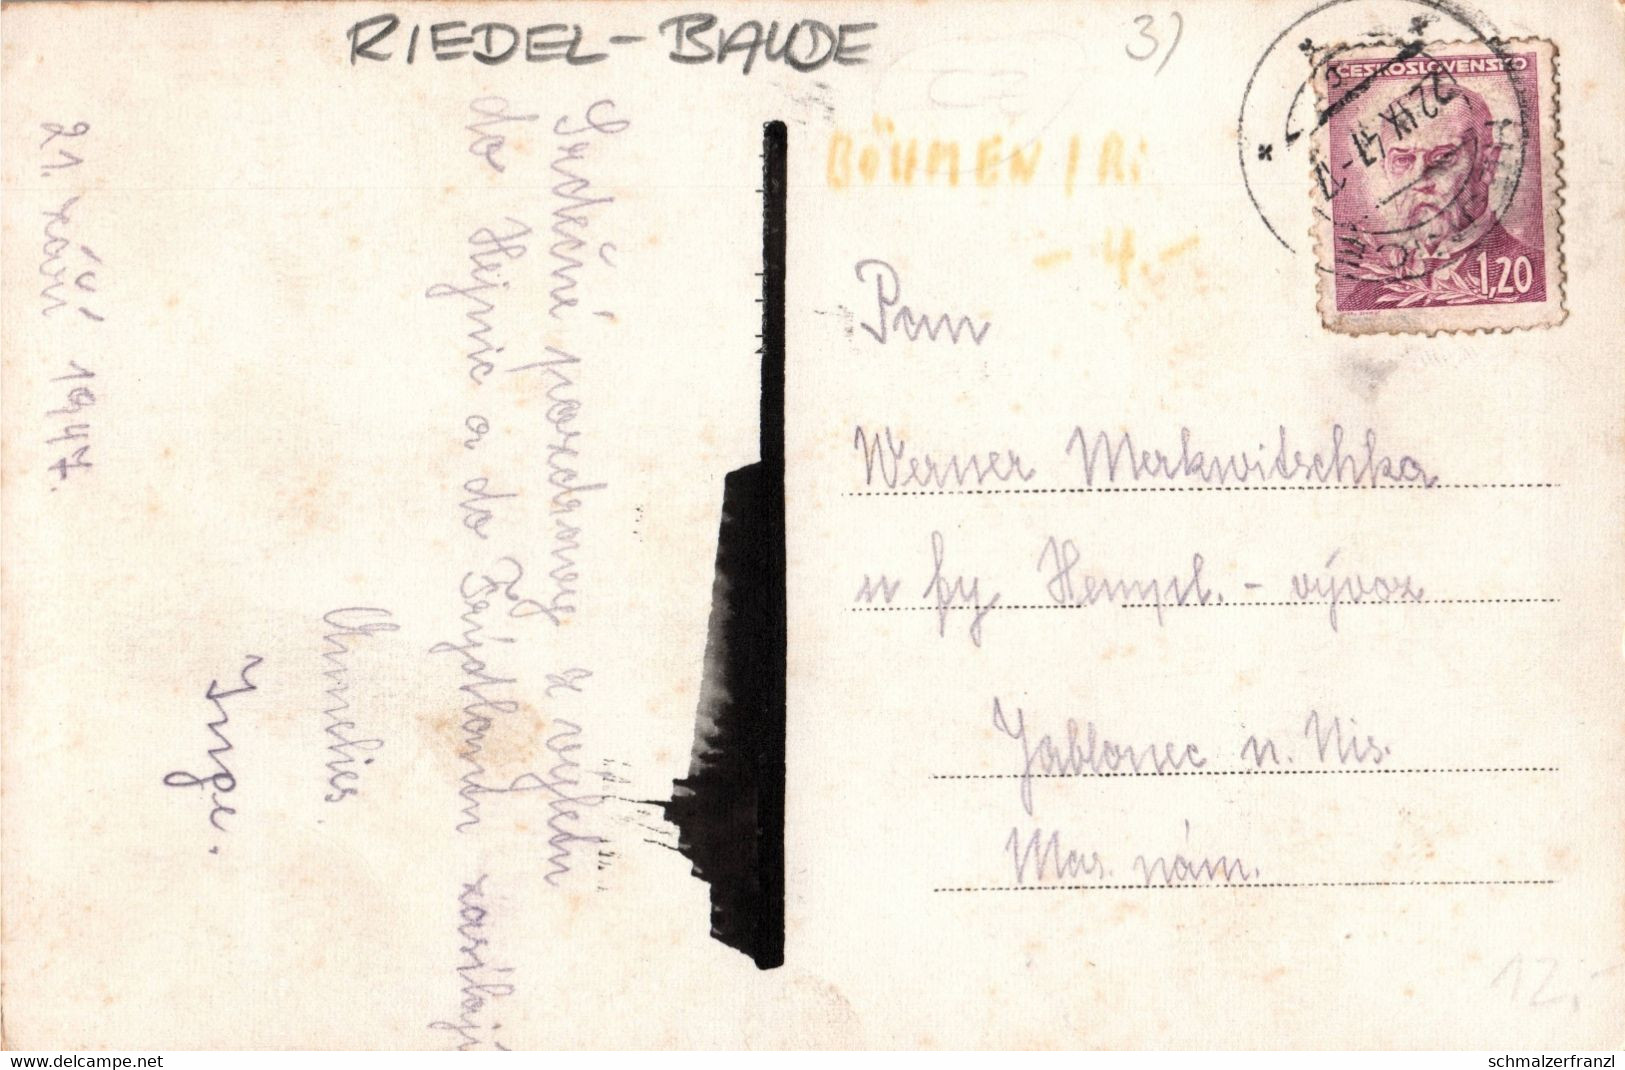 RIEDEL-BAUDE
3)
BÖHMEN / Ri
- 4.-
ČESKOSLOVENSKO
1,20
22.IX.47-17
21. září 1947.
Srdečné pozdravy z výletu
do Hejnic a do Frýdlantu zasílají
Annelies.
Inge.
Pan
Werner Merkwitschka
u fy Hempl. - vývoz
Jablonec n. Nis.
Mas. nám.
12.-
www.delcampe.net
schmalzerfranzl